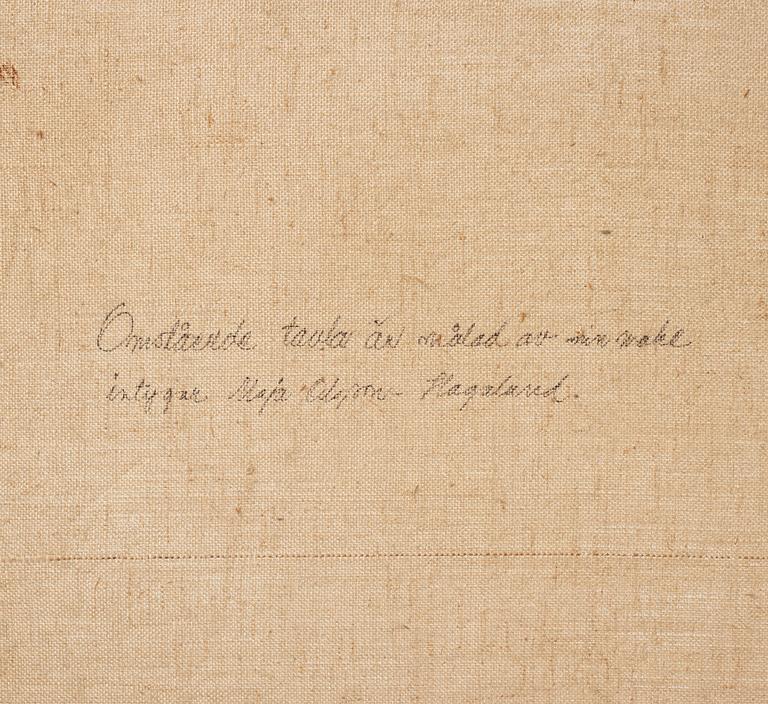 Omstående tavla är målad av min make
intygar Maja Olsson Hagalund.